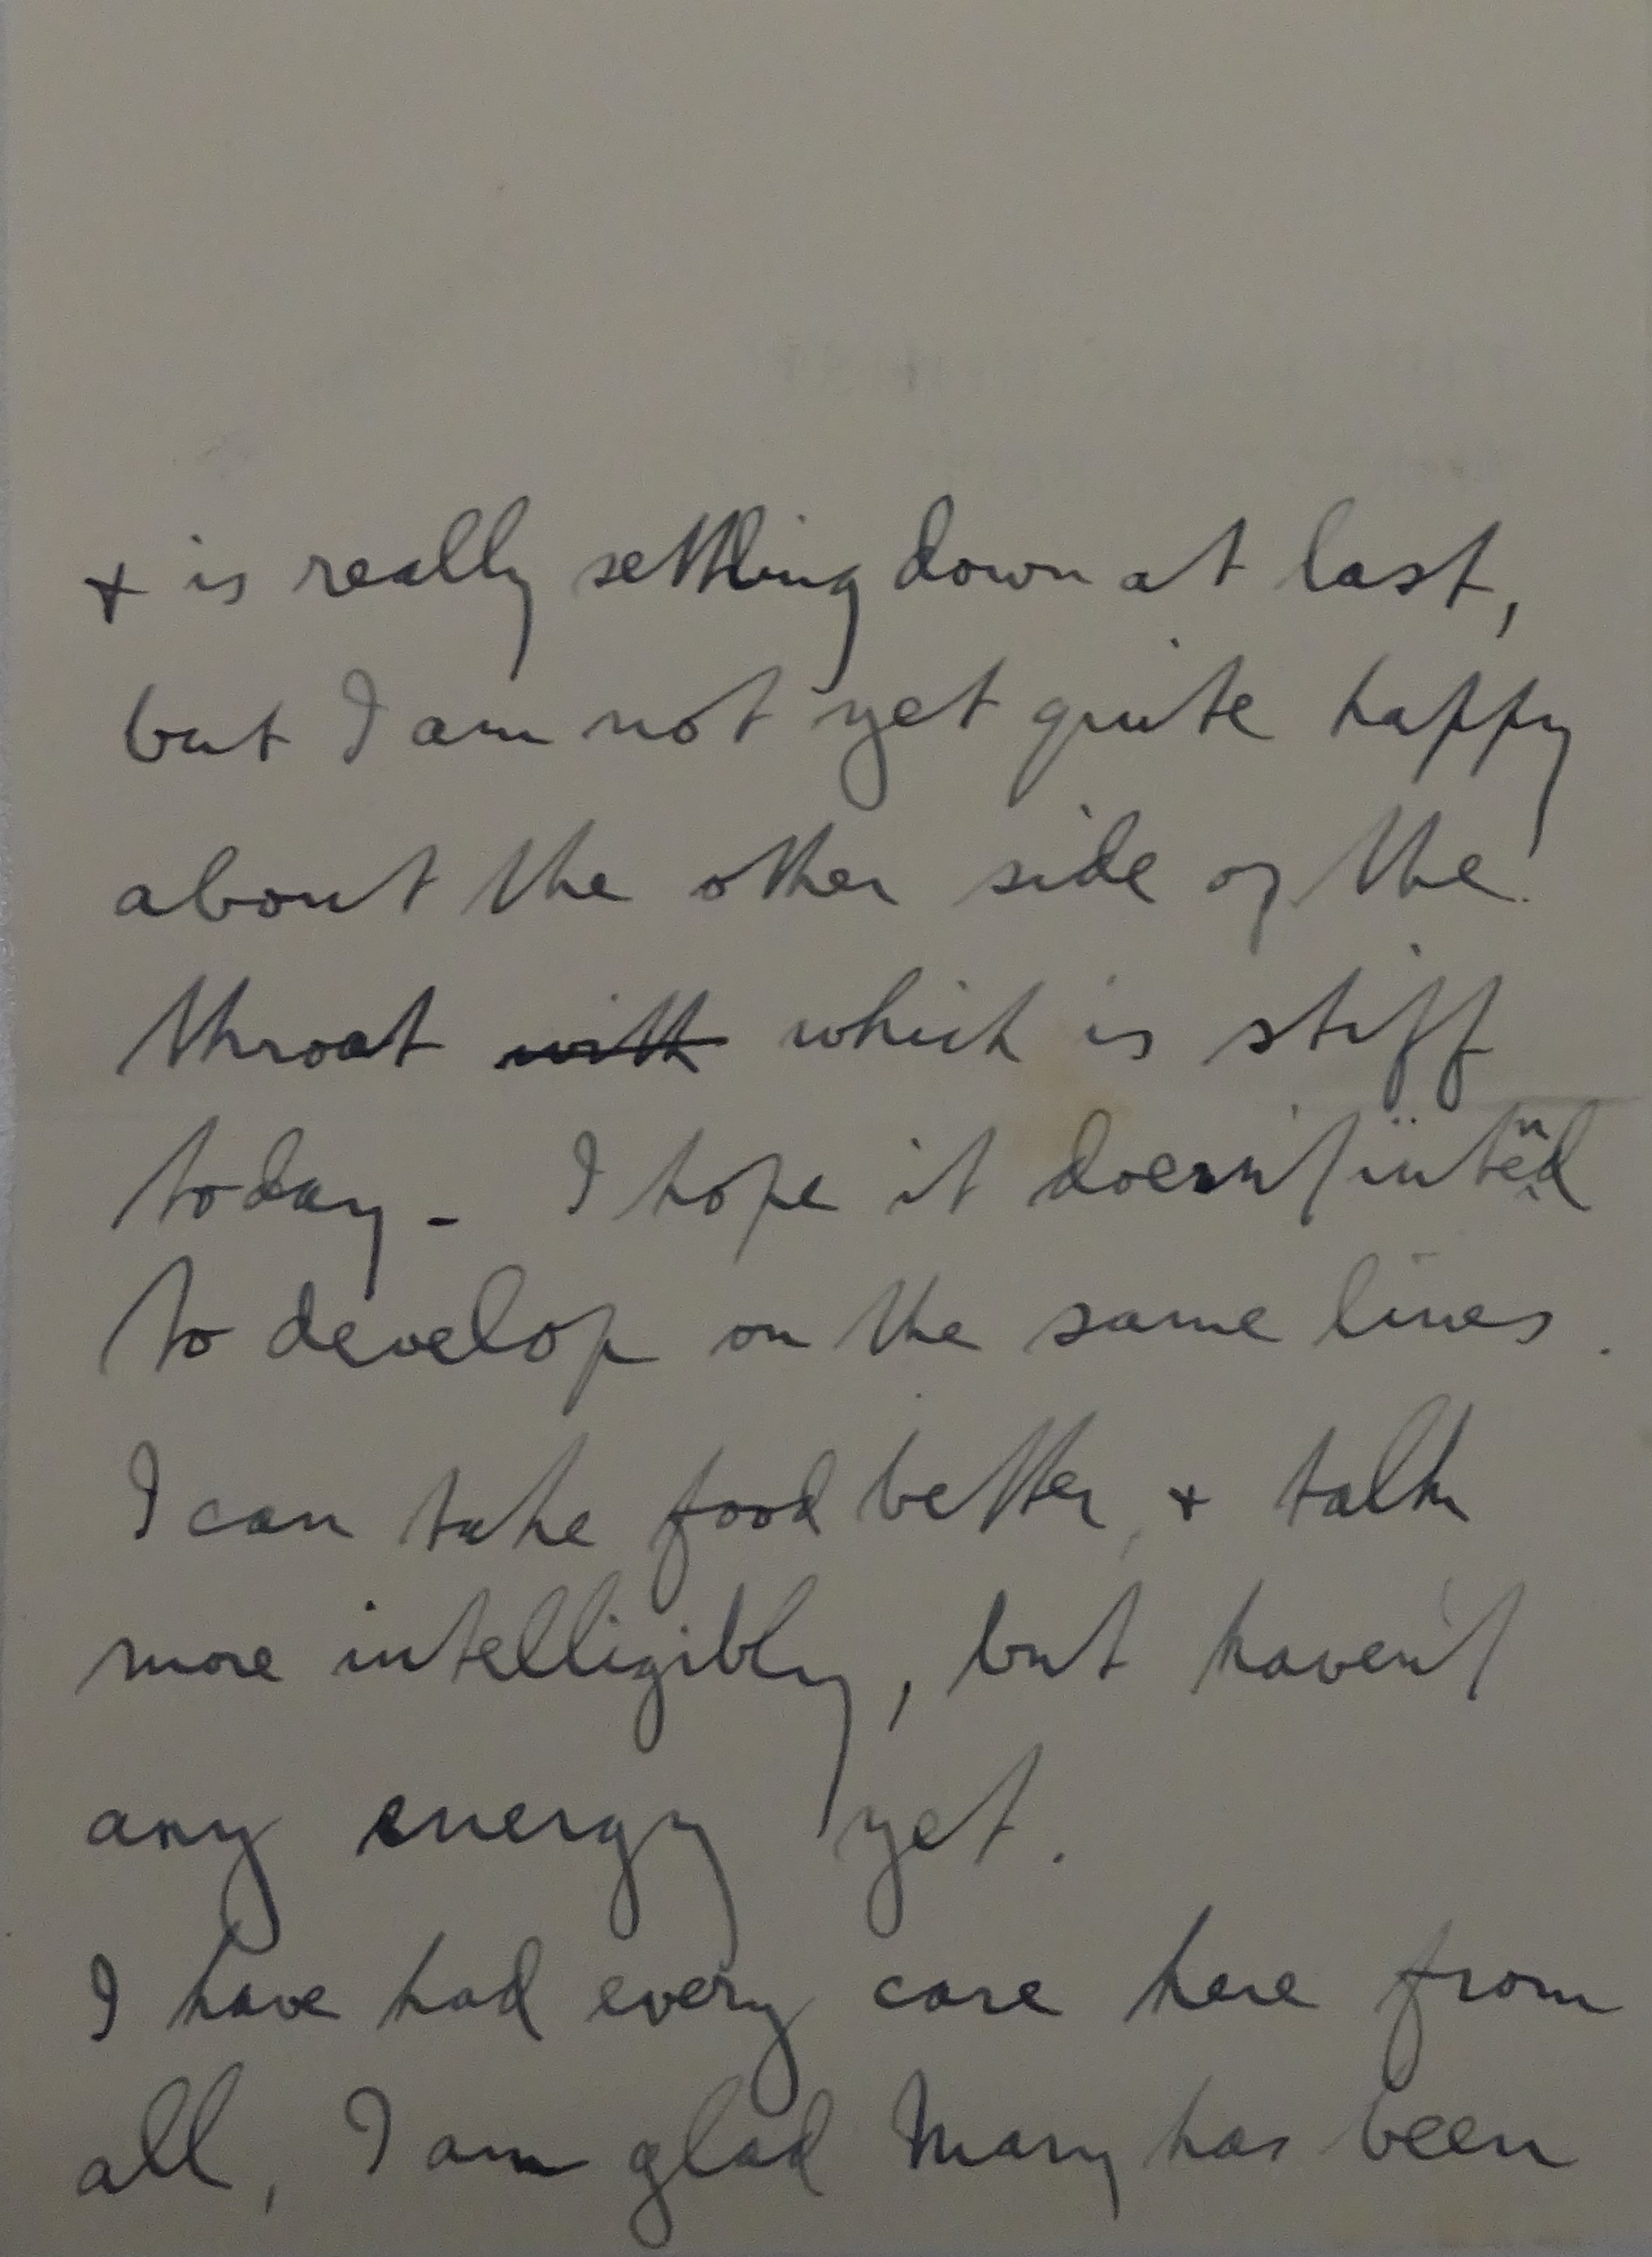 + is really settling down at last,
but I am not yet quite happy
about the other side of the
throat ~~with~~ which is stiff
today - I hope it doesn't intend
to develop on the same lines.
I can take food better, + talk
more intelligibly, but haven't
any energy yet.
I have had every care here from
all, I am glad Mary has been